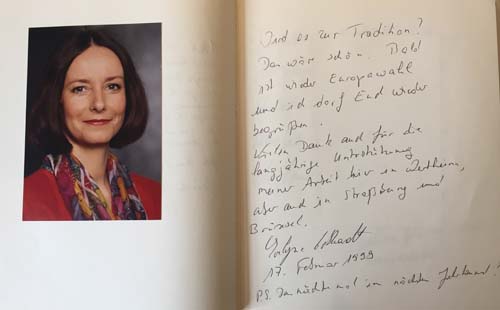 Wird es zur Tradition?
Das wär schön. Bald
ist wieder Europawahl
und ich darf Euch wieder
begrüßen.
Vielen Dank auch für die
langjährige Unterstützung
meiner Arbeit hier in Wertheim,
aber auch in Straßburg und
Brüssel.
17. Februar 1999
P.S. Das nächste mal im nächsten Jahrtausend!